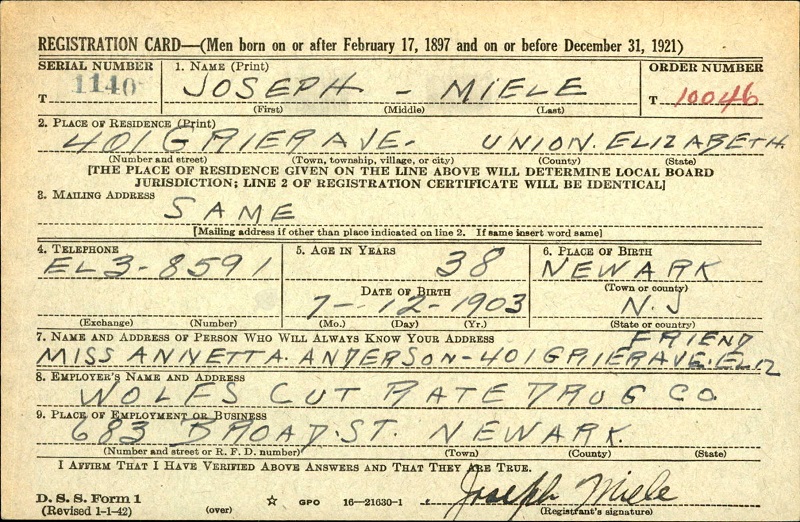 REGISTRATION CARD—(Men born on or after February 17, 1897 and on or before December 31, 1921)
SERIAL NUMBER 1. NAME (Print) ORDER NUMBER
T 1140 JOSEPH - MIELE T 10046
(First) (Middle) (Last)
2. PLACE OF RESIDENCE (Print)
401 GRIER AVE. UNION. ELIZABETH.
(Number and street) (Town, township, village, or city) (County) (State)
[THE PLACE OF RESIDENCE GIVEN ON THE LINE ABOVE WILL DETERMINE LOCAL BOARD
JURISDICTION; LINE 2 OF REGISTRATION CERTIFICATE WILL BE IDENTICAL]
3. MAILING ADDRESS
SAME
[Mailing address if other than place indicated on line 2. If same insert word same]
4. TELEPHONE 5. AGE IN YEARS 6. PLACE OF BIRTH
EL 3-8591 38 NEWARK
DATE OF BIRTH (Town or county)
7-12-1903 N.J
(Exchange) (Number) (Mo.) (Day) (Yr.) (State or country)
7. NAME AND ADDRESS OF PERSON WHO WILL ALWAYS KNOW YOUR ADDRESS FRIEND
MISS ANNETTA. ANDERSON-401 GRIER AVE. ELIZ
8. EMPLOYER'S NAME AND ADDRESS
WOLFS CUT RATE DRUG CO
9. PLACE OF EMPLOYMENT OR BUSINESS
683 BROAD. ST. NEWARK.
(Number and street or R. F. D. number) (Town) (County) (State)
I AFFIRM THAT I HAVE VERIFIED ABOVE ANSWERS AND THAT THEY ARE TRUE.
D. S. S. Form 1 Joseph Miele
(Revised 1-1-42) (over) ☆ GPO 16—21630-1 (Registrant's signature)